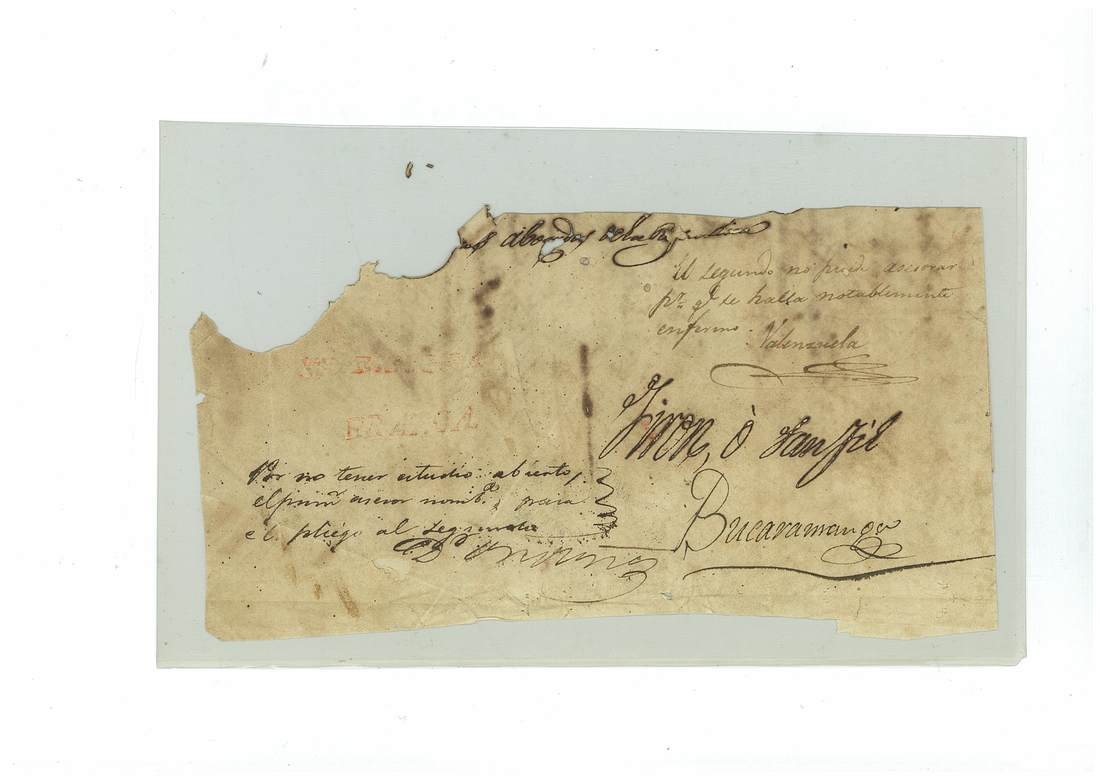 abogados de la Repca
El segundo no puede asesorar
pr. qe. se halla notablemente
enfermo.
Valenzuela
FRANCA
Jiron, ò San Jil
Por no tener estudio abierto,
el primr asesor nombdo, pasa
el pliego al segundo
Bucaramanga